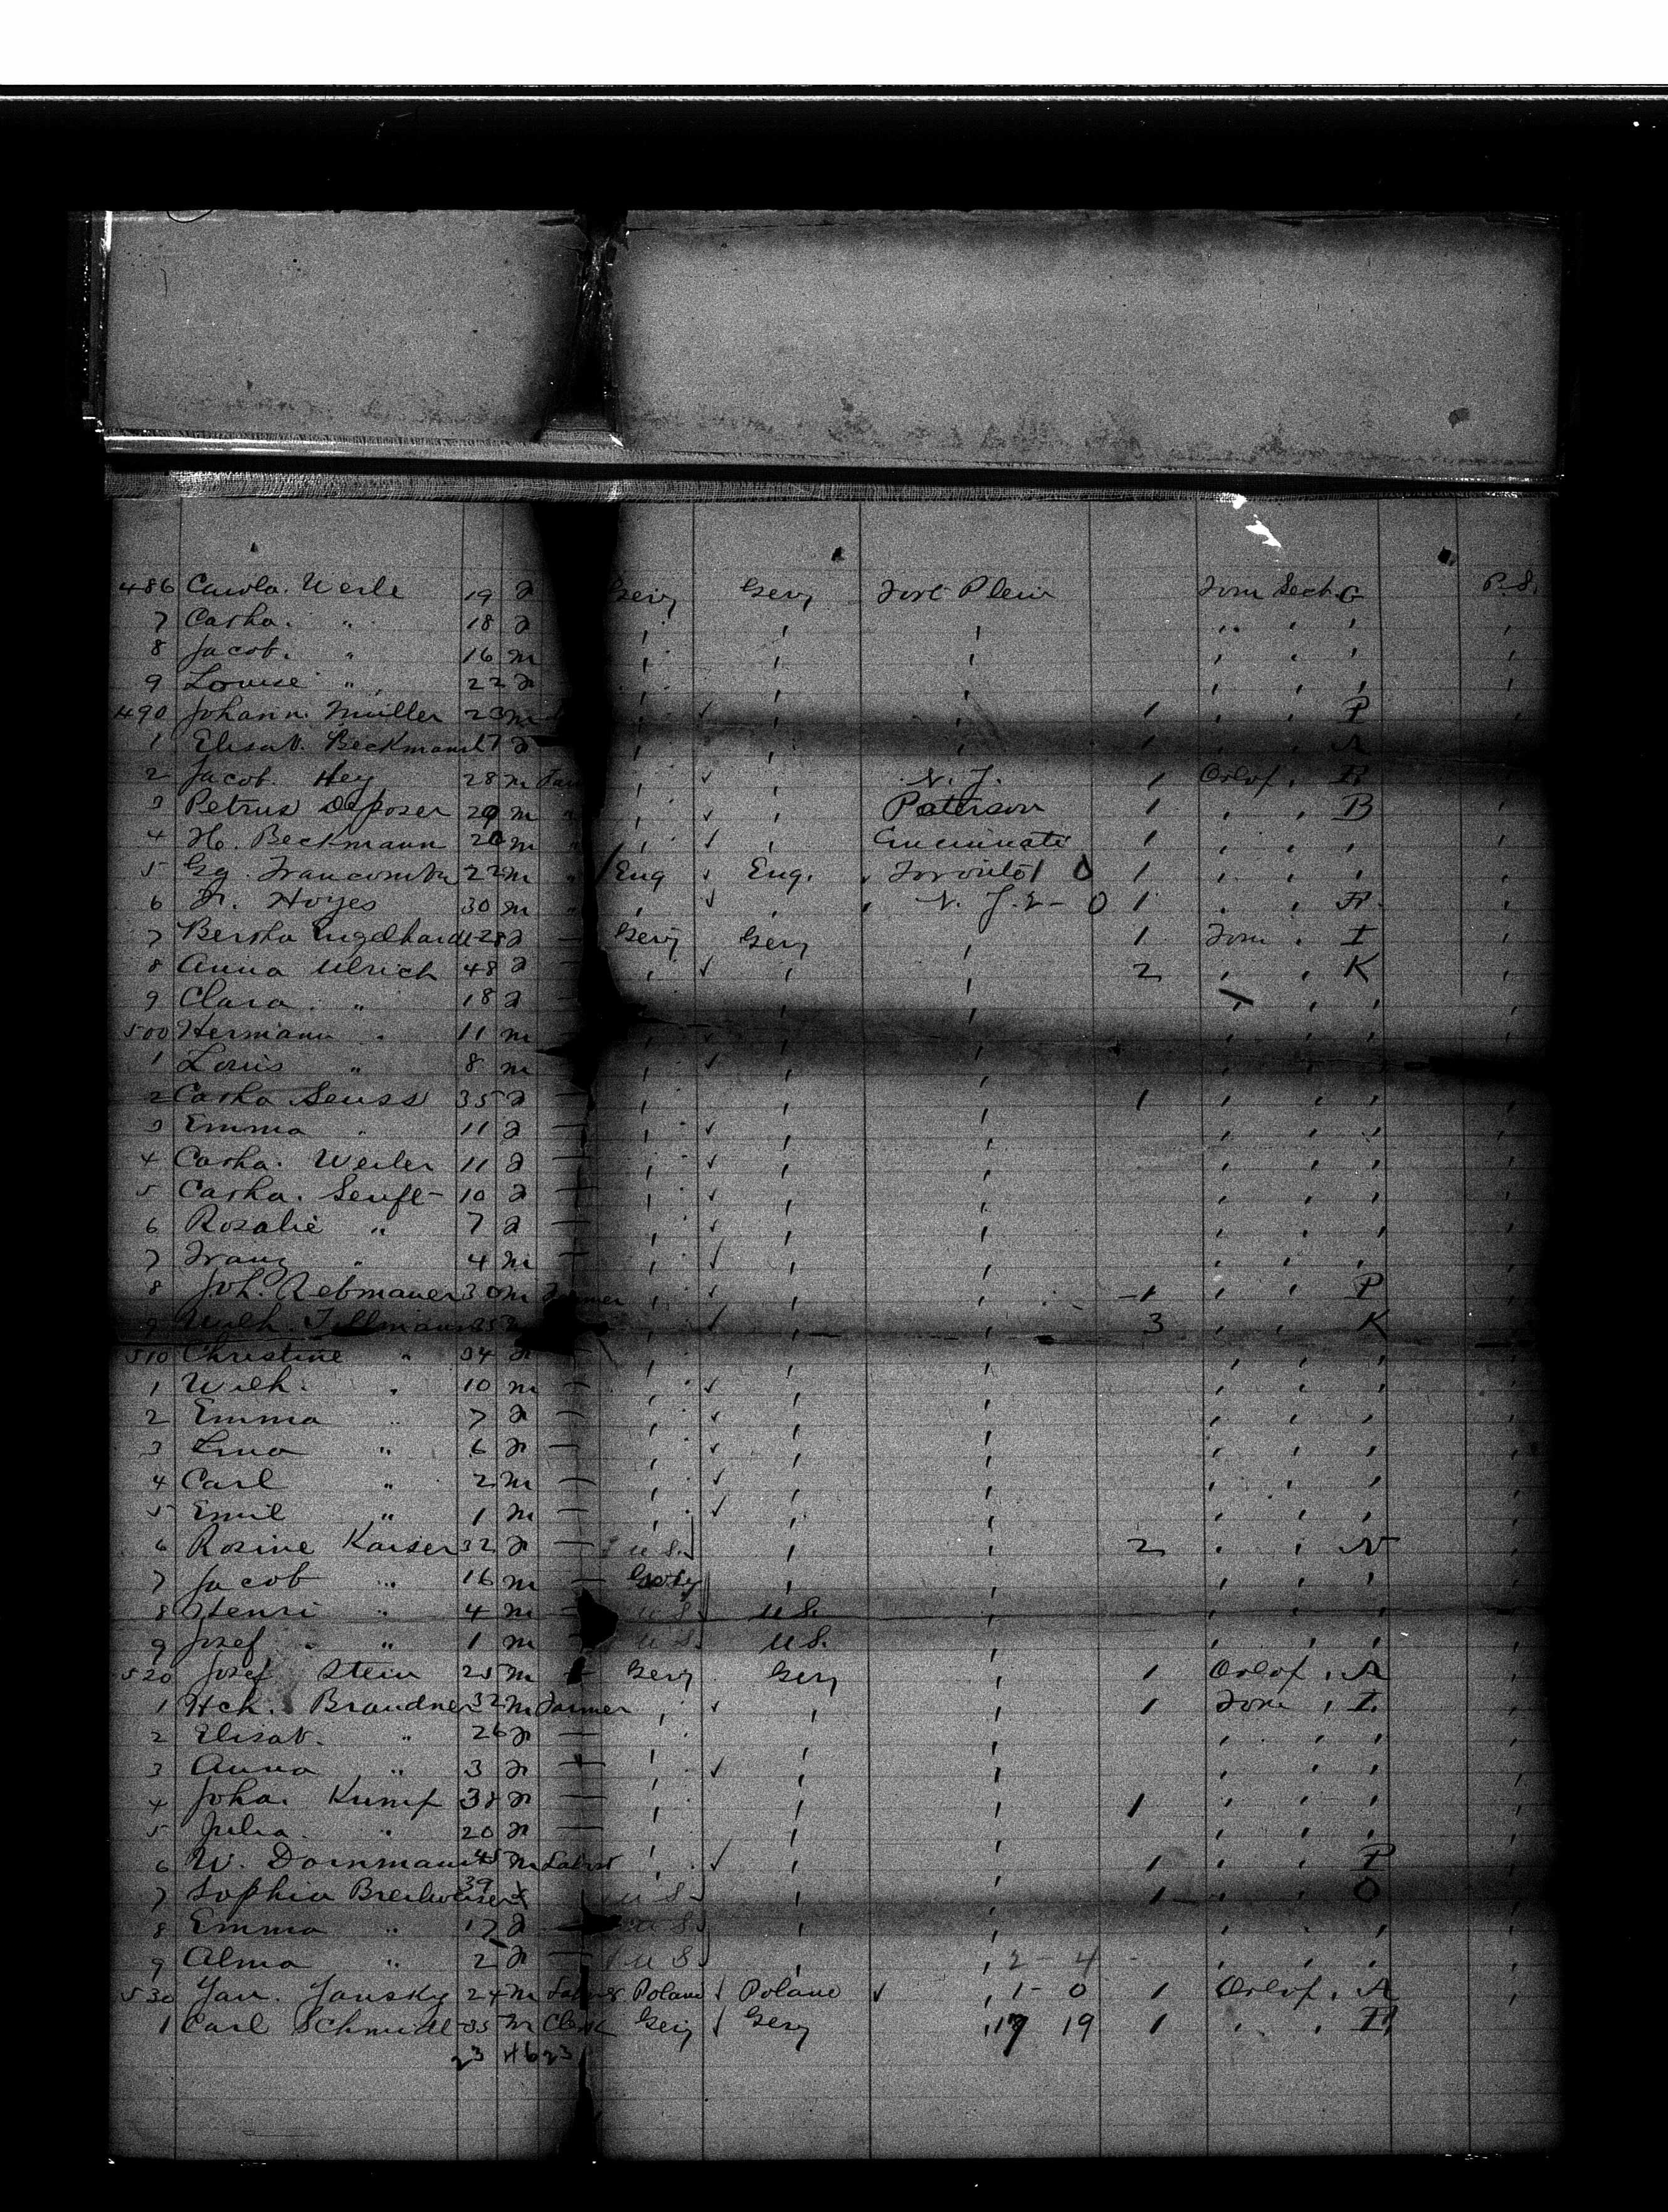 486 Carola. Weile 19 f Gery Gery Fort Plein Forw Sech. G P.S.
7 Catha. " 18 f
8 Jacob. " 16 m
9 Louise " 22 f
490 Johann. Müller 23 m ✓ 1 P
1 Elisab. Beckmann 17 f 1
2 Jacob. Hey 28 m ✓ N. J. 1 Orlof
3 Petrus 29 m ✓ Paterson 1 B
4 Hc. Beckmann 20 m ✓ Cincinnati 1
5 Gg. 22 m Eng ✓ Eng. 0 1
6 Fr. Hoyes 30 m ✓ 0 1
7 Bertha Engelhardt 28 f — Gery Gery 1 Forw I
8 Anna Ulrich 48 f — ✓ 2 K
9 Clara " 18 f —
500 Hermann " 11 m — ✓
1 Louis " 8 m ✓
2 Catha Seuss 35 f — 1
3 Emma " 11 f — ✓
4 Catha. Weiler 11 f — ✓
5 Catha. Senft- 10 f — ✓
6 Rosalie " 7 f — ✓
7 Franz " 4 m — ✓
8 Joh. Rebmauer 30 m Farmer ✓ 1 P
9 Wilh. Tillmann ✓ 3 K
510 Christine " 34 f —
1 Wilh. " 10 m — ✓
2 Emma " 7 f — ✓
3 Lina " 6 f — ✓
4 Carl " 2 m — ✓
5 Emil " 1 m — ✓
6 Rosine Kaiser 32 f — U S. 2 N
7 Jacob " 16 m — Gery
8 Henri " 4 m U S. U S.
9 Josef " 1 m U S. U S.
520 Josef Stein 25 m Gery Gery 1 Orlof
1 Hch. Brandner 32 m Farmer ✓ 1 Forw I.
2 Elisab. " 26 f —
3 Anna " 3 f — ✓
4 Joha. Kumpf 38 f — 1
5 Julia. " 20 f —
6 W. Dornmann 45 m ✓ 1 P
7 Sophia 39 U S. 1 O
8 Emma " 17 f U S.
9 Alma " 2 f — U S. 2 - 4
530 Jan. Jansky 24 m Poland ✓ Poland ✓ 1 - 0 1 Orlof
1 Carl Schmidt 35 m Clerk Gery ✓ Gery 17 19 1
23 46 23